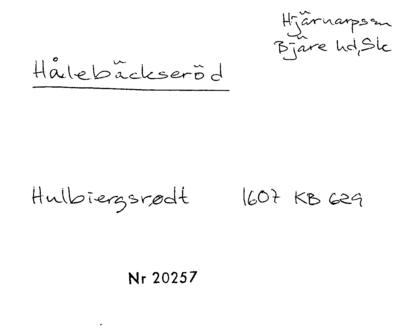 Hjärnarpssn
Bjäre hd, Sk
Hålebäckseröd
Hulbiergsrødt 1607 KB 629
Nr 20257